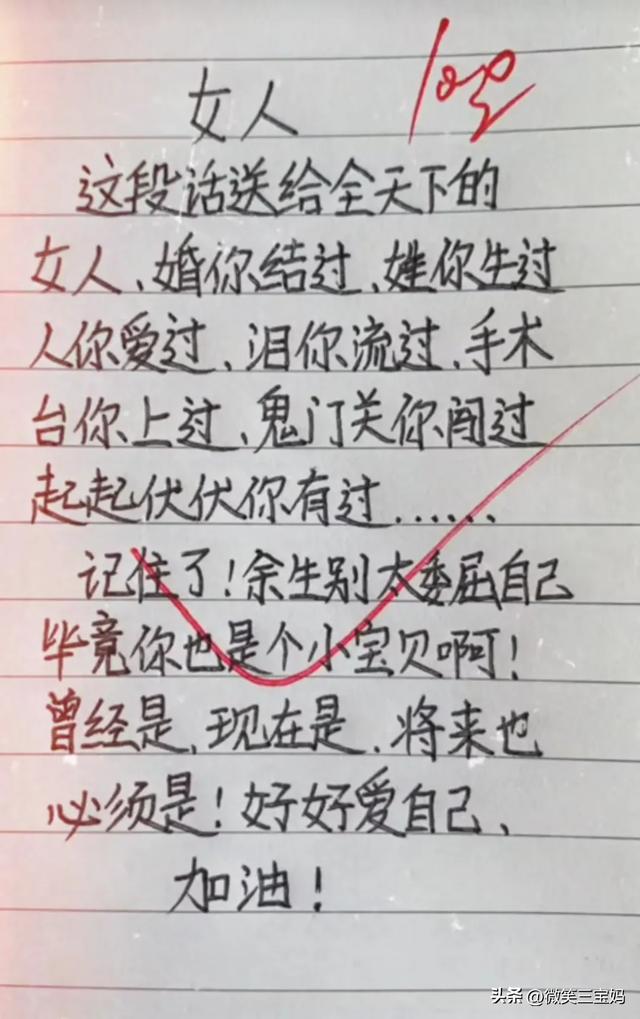 女人
100分
这段话送给全天下的
女人、婚你结过、娃你生过
人你爱过、泪你流过、手术
台你上过、鬼门关你闯过
起起伏伏你有过......
记住了!余生别太委屈自己
毕竟你也是个小宝贝啊!
曾经是、现在是、将来也
必须是!好好爱自己、
加油!
头条 @微笑三宝妈